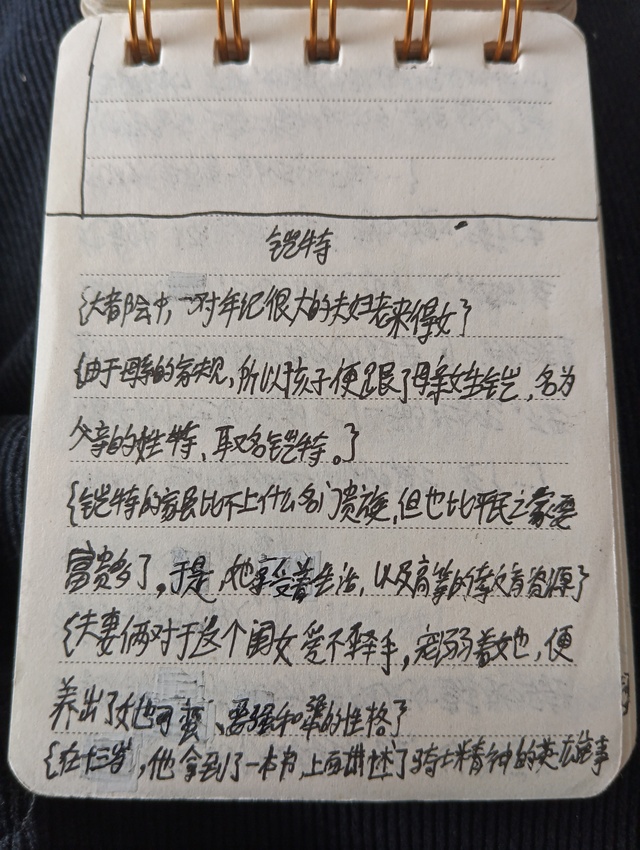 铠特
{大都会中,一对年纪很大的夫妇老来得女}
{由于母亲的家规,所以孩子便跟了母亲姓铠,名为
父亲的姓特、取名铠特。}
{铠特的家民比不上什么名门贵族,但也比平民之家要
富贵多了,于是,她享受着生活,以及高等的教育资源}
{夫妻俩对于这个闺女爱不释手,宠溺着她,便
养出了她可爱、要强和的性格}
{在十三岁,他拿到了一本书,上面讲述了骑士精神的英雄事